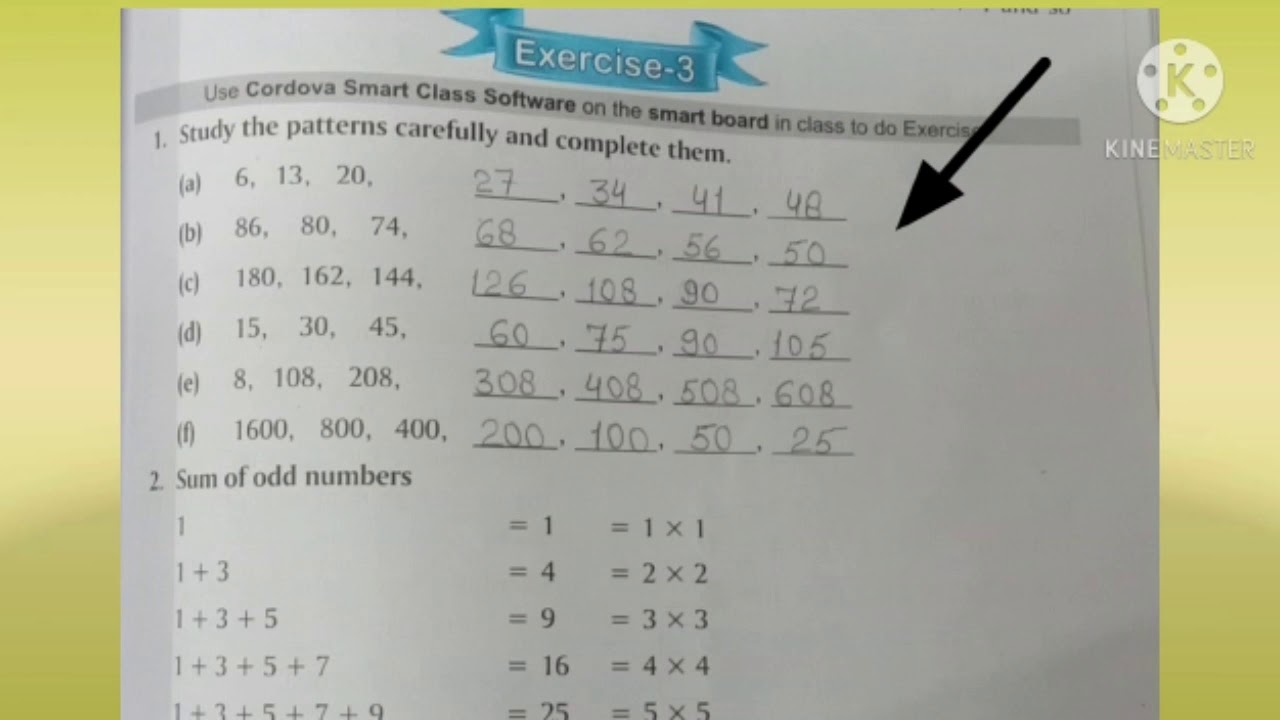 Exercise-3
KINEMASTER
Use Cordova Smart Class Software on the smart board in class to do Exercise
1. Study the patterns carefully and complete them.
(a) 6, 13, 20, 27, 34, 41, 48
(b) 86, 80, 74, 68, 62, 56, 50
(c) 180, 162, 144, 126, 108, 90, 72
(d) 15, 30, 45, 60, 75, 90, 105
(e) 8, 108, 208, 308, 408, 508, 608
(f) 1600, 800, 400, 200, 100, 50, 25
2. Sum of odd numbers
1 = 1 = 1 × 1
1 + 3 = 4 = 2 × 2
1 + 3 + 5 = 9 = 3 × 3
1 + 3 + 5 + 7 = 16 = 4 × 4
1 + 3 + 5 + 7 + 9 = 25 = 5 × 5